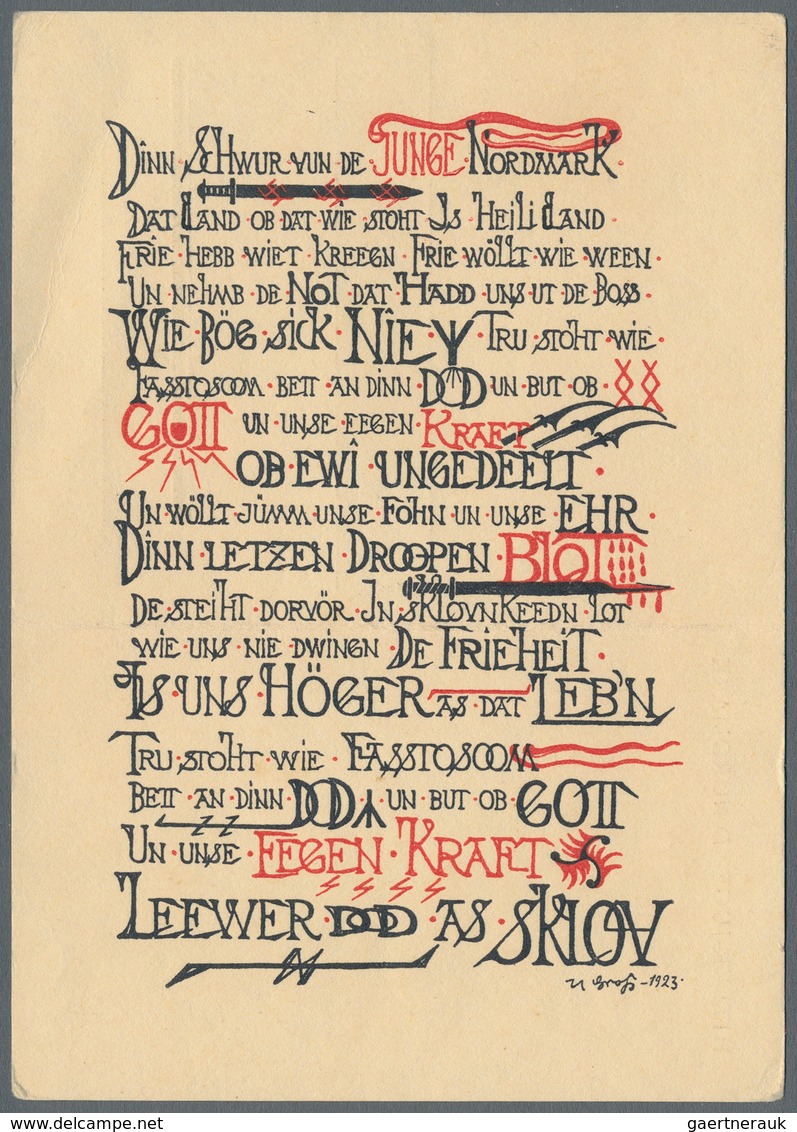 DÎNN · SCHWUR · VUN · DE · JUNGE · NORDMARK ·
DAT LAND · OB · DAT · WIE · STOHT · JS · HEILI LAND ·
FRIE · HEBB · WIET · KREEGN · FRIE · WÖLLT · WIE · WEEN ·
UN · NEHMB · DE · NOT · DAT · HADD · UNS · UT · DE · BOSS ·
WIE · BÖG · SICK · NÎE · TRU · STOHT · WIE ·
FASSTOSOOM · BETT · AN · DINN · DOD · UN · BUT · OB ·
GOTT UN · UNSE · EEGEN · KRAFT
OB · EWÎ · UNGEDEELT ·
UN · WÖLLT · JÜMM · UNSE · FÖHN · UN · UNSE · EHR ·
DÎNN · LETZEN · DROOPEN · BLOT
DE · STEIHT · DORVÖR · JN · SKLOVNKEEDN · LOT
WIE · UNS · NIE · DWINGN · DE · FRIEHEIT ·
IS · UNS · HÖGER AS · DAT LEB'N
TRU · STOHT · WIE · FASSTOSOOM
BETT · AN · DINN · DOD · UN · BUT · OB · GOTT
UN · UNSE · EEGEN · KRAFT
LEEWER · DOD · AS · SKLOV
Groß - 1923.
gaertnerauk